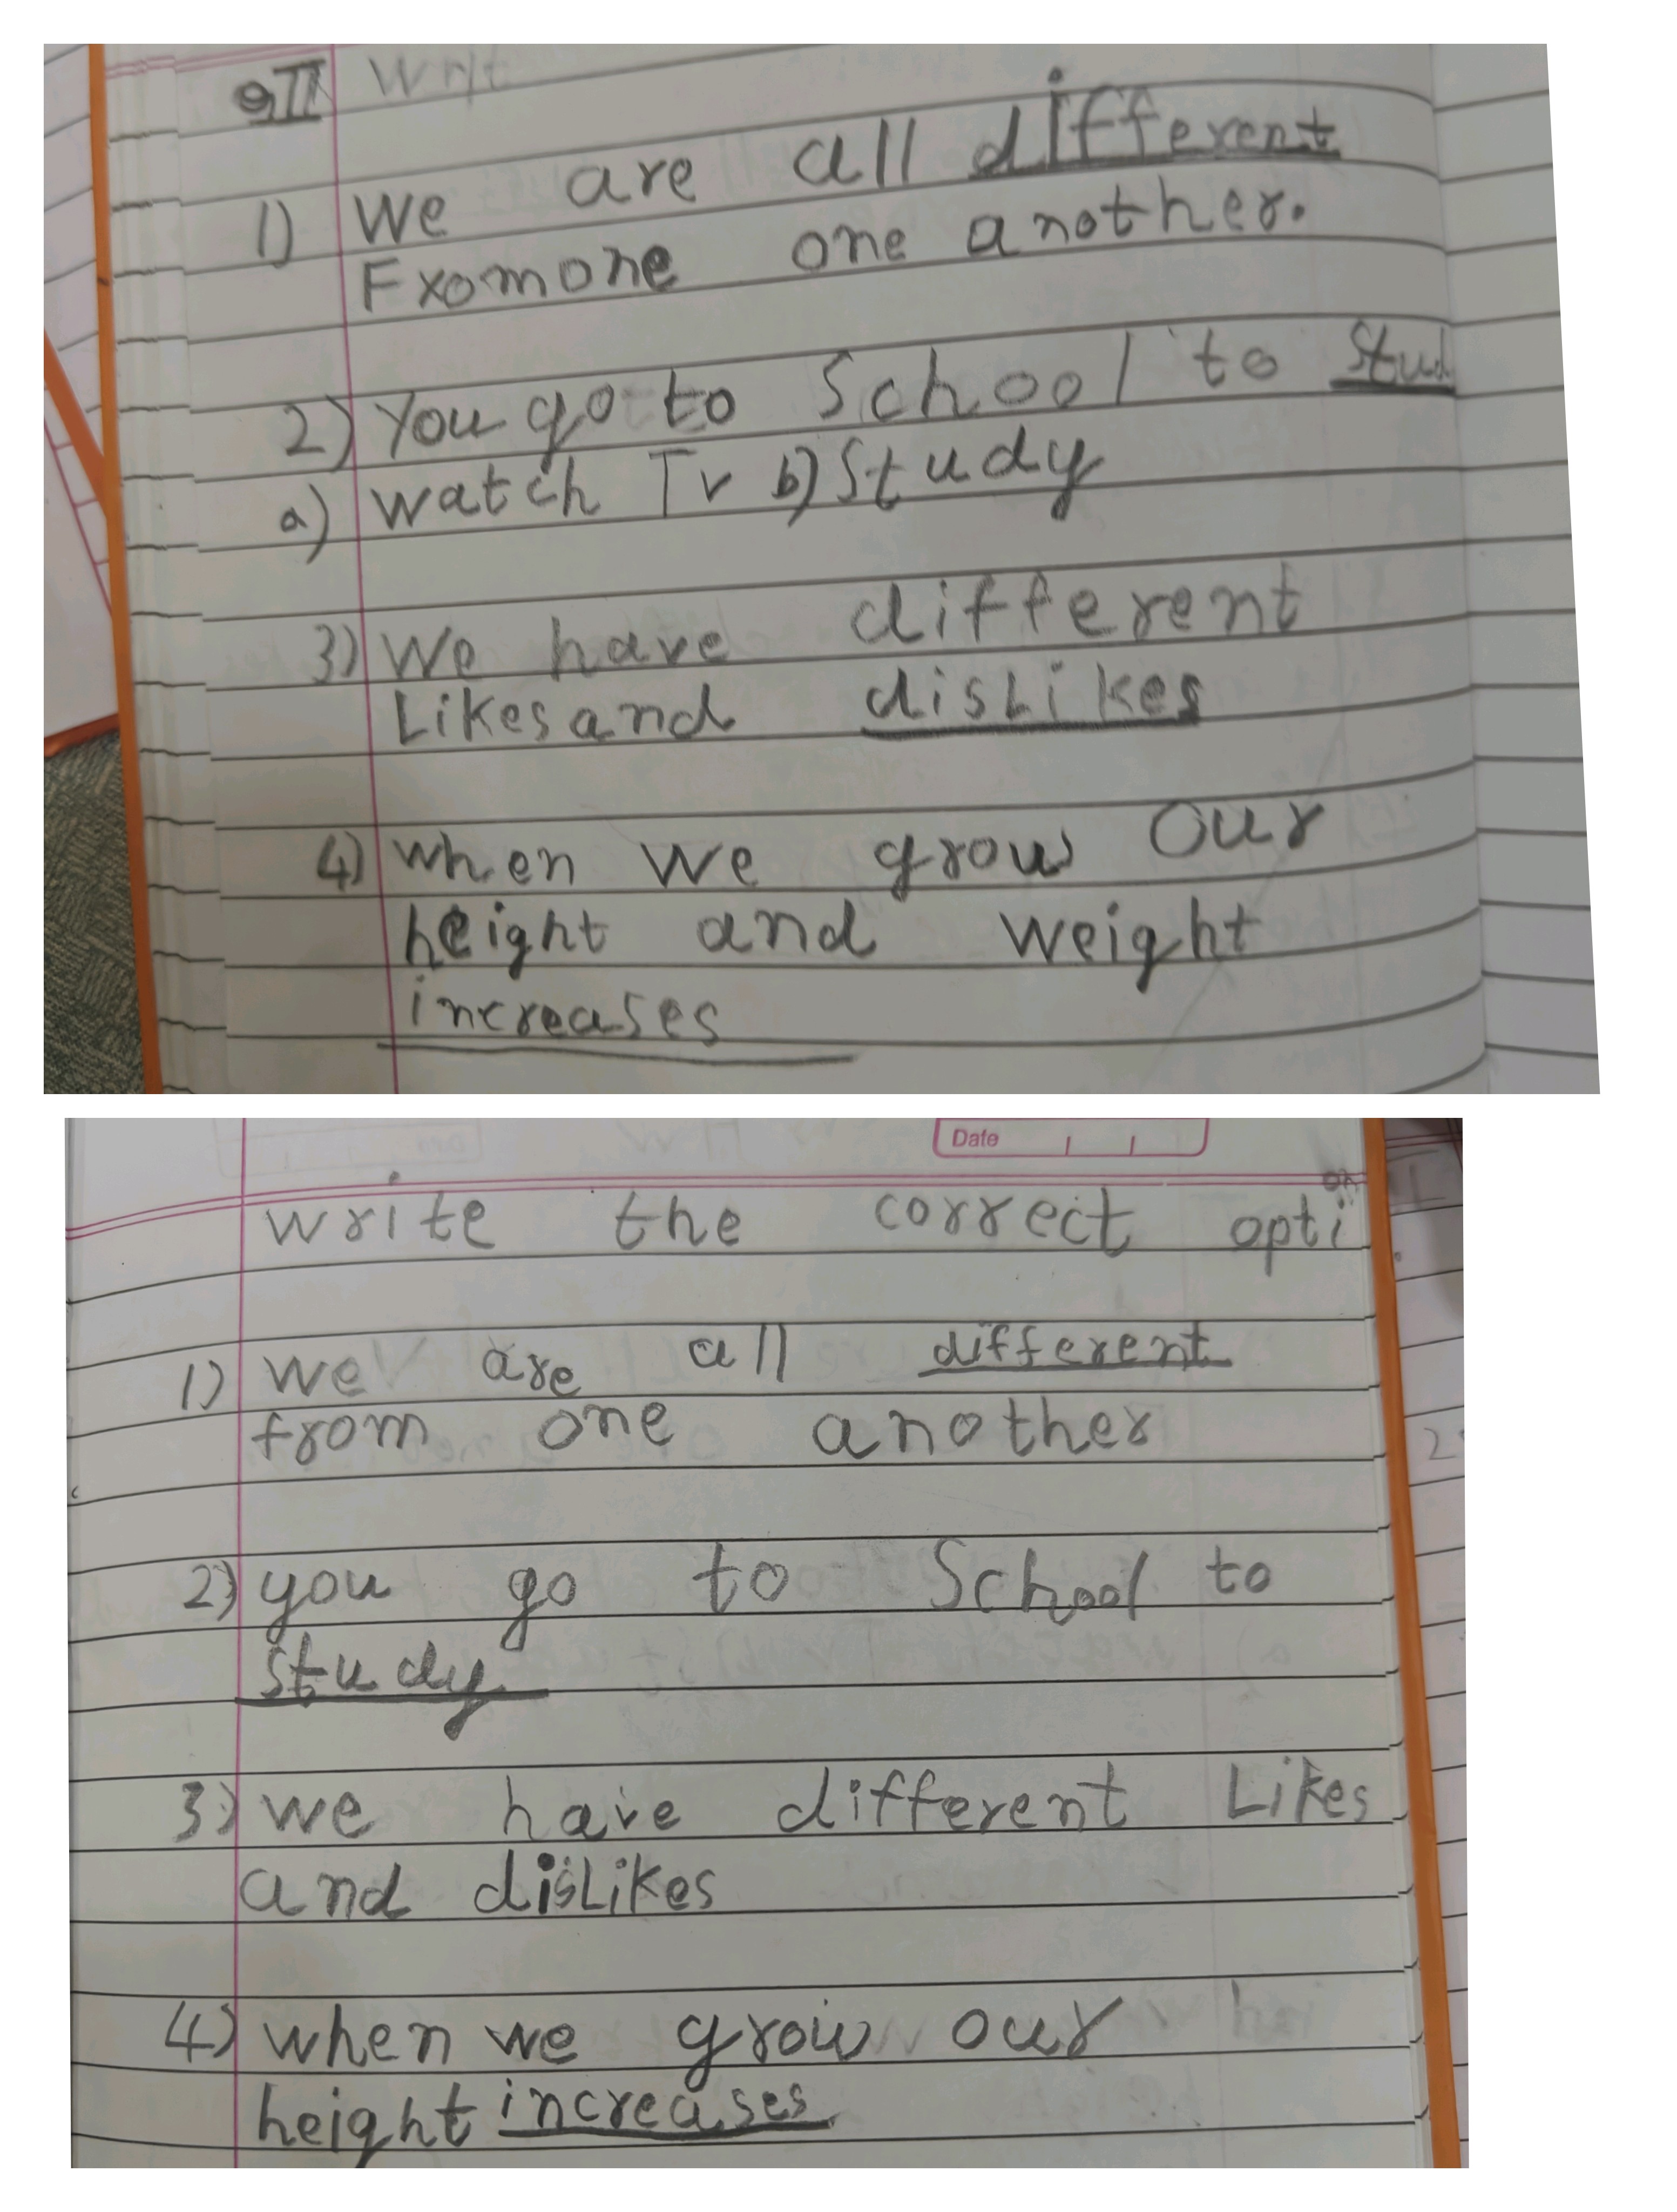 QII Writ
1) We are all different
Fromone one another.
2) You go to School to Stud
a) watch Tv b) Study
3) We have different
Likes and disLikes
4) when we grow our
height and weight
increases
Date
write the correct option
1) we are all different
from one another
2) you go to School to
study
3) we have different Likes
and disLikes
4) when we grow our
height increases